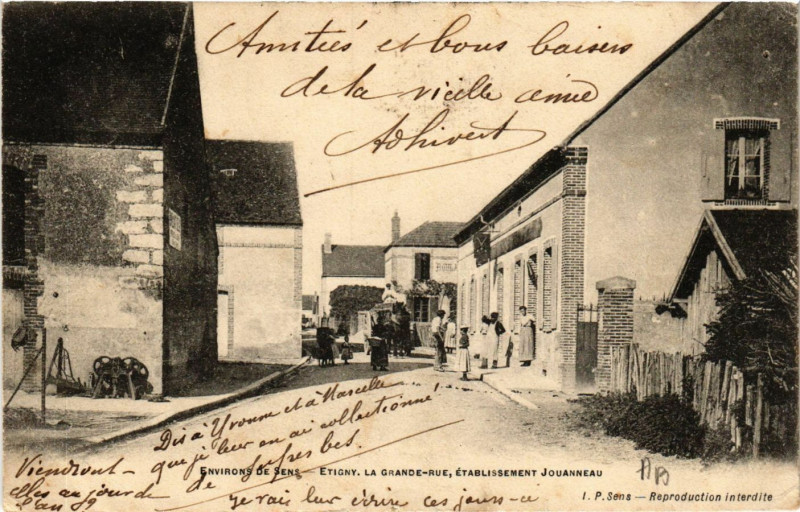 Amitiés et bons baisers
de la vieille amie
Adhivert
Dis à Yvonne et à Marcelle
que je leur en ai collectionné
de superbes
je vais leur écrire ces jours-ci
Viendront-
elles au jour de
l'an ??
ENVIRONS DE SENS — ETIGNY. LA GRANDE-RUE, ÉTABLISSEMENT JOUANNEAU
I. P. Sens — Reproduction interdite